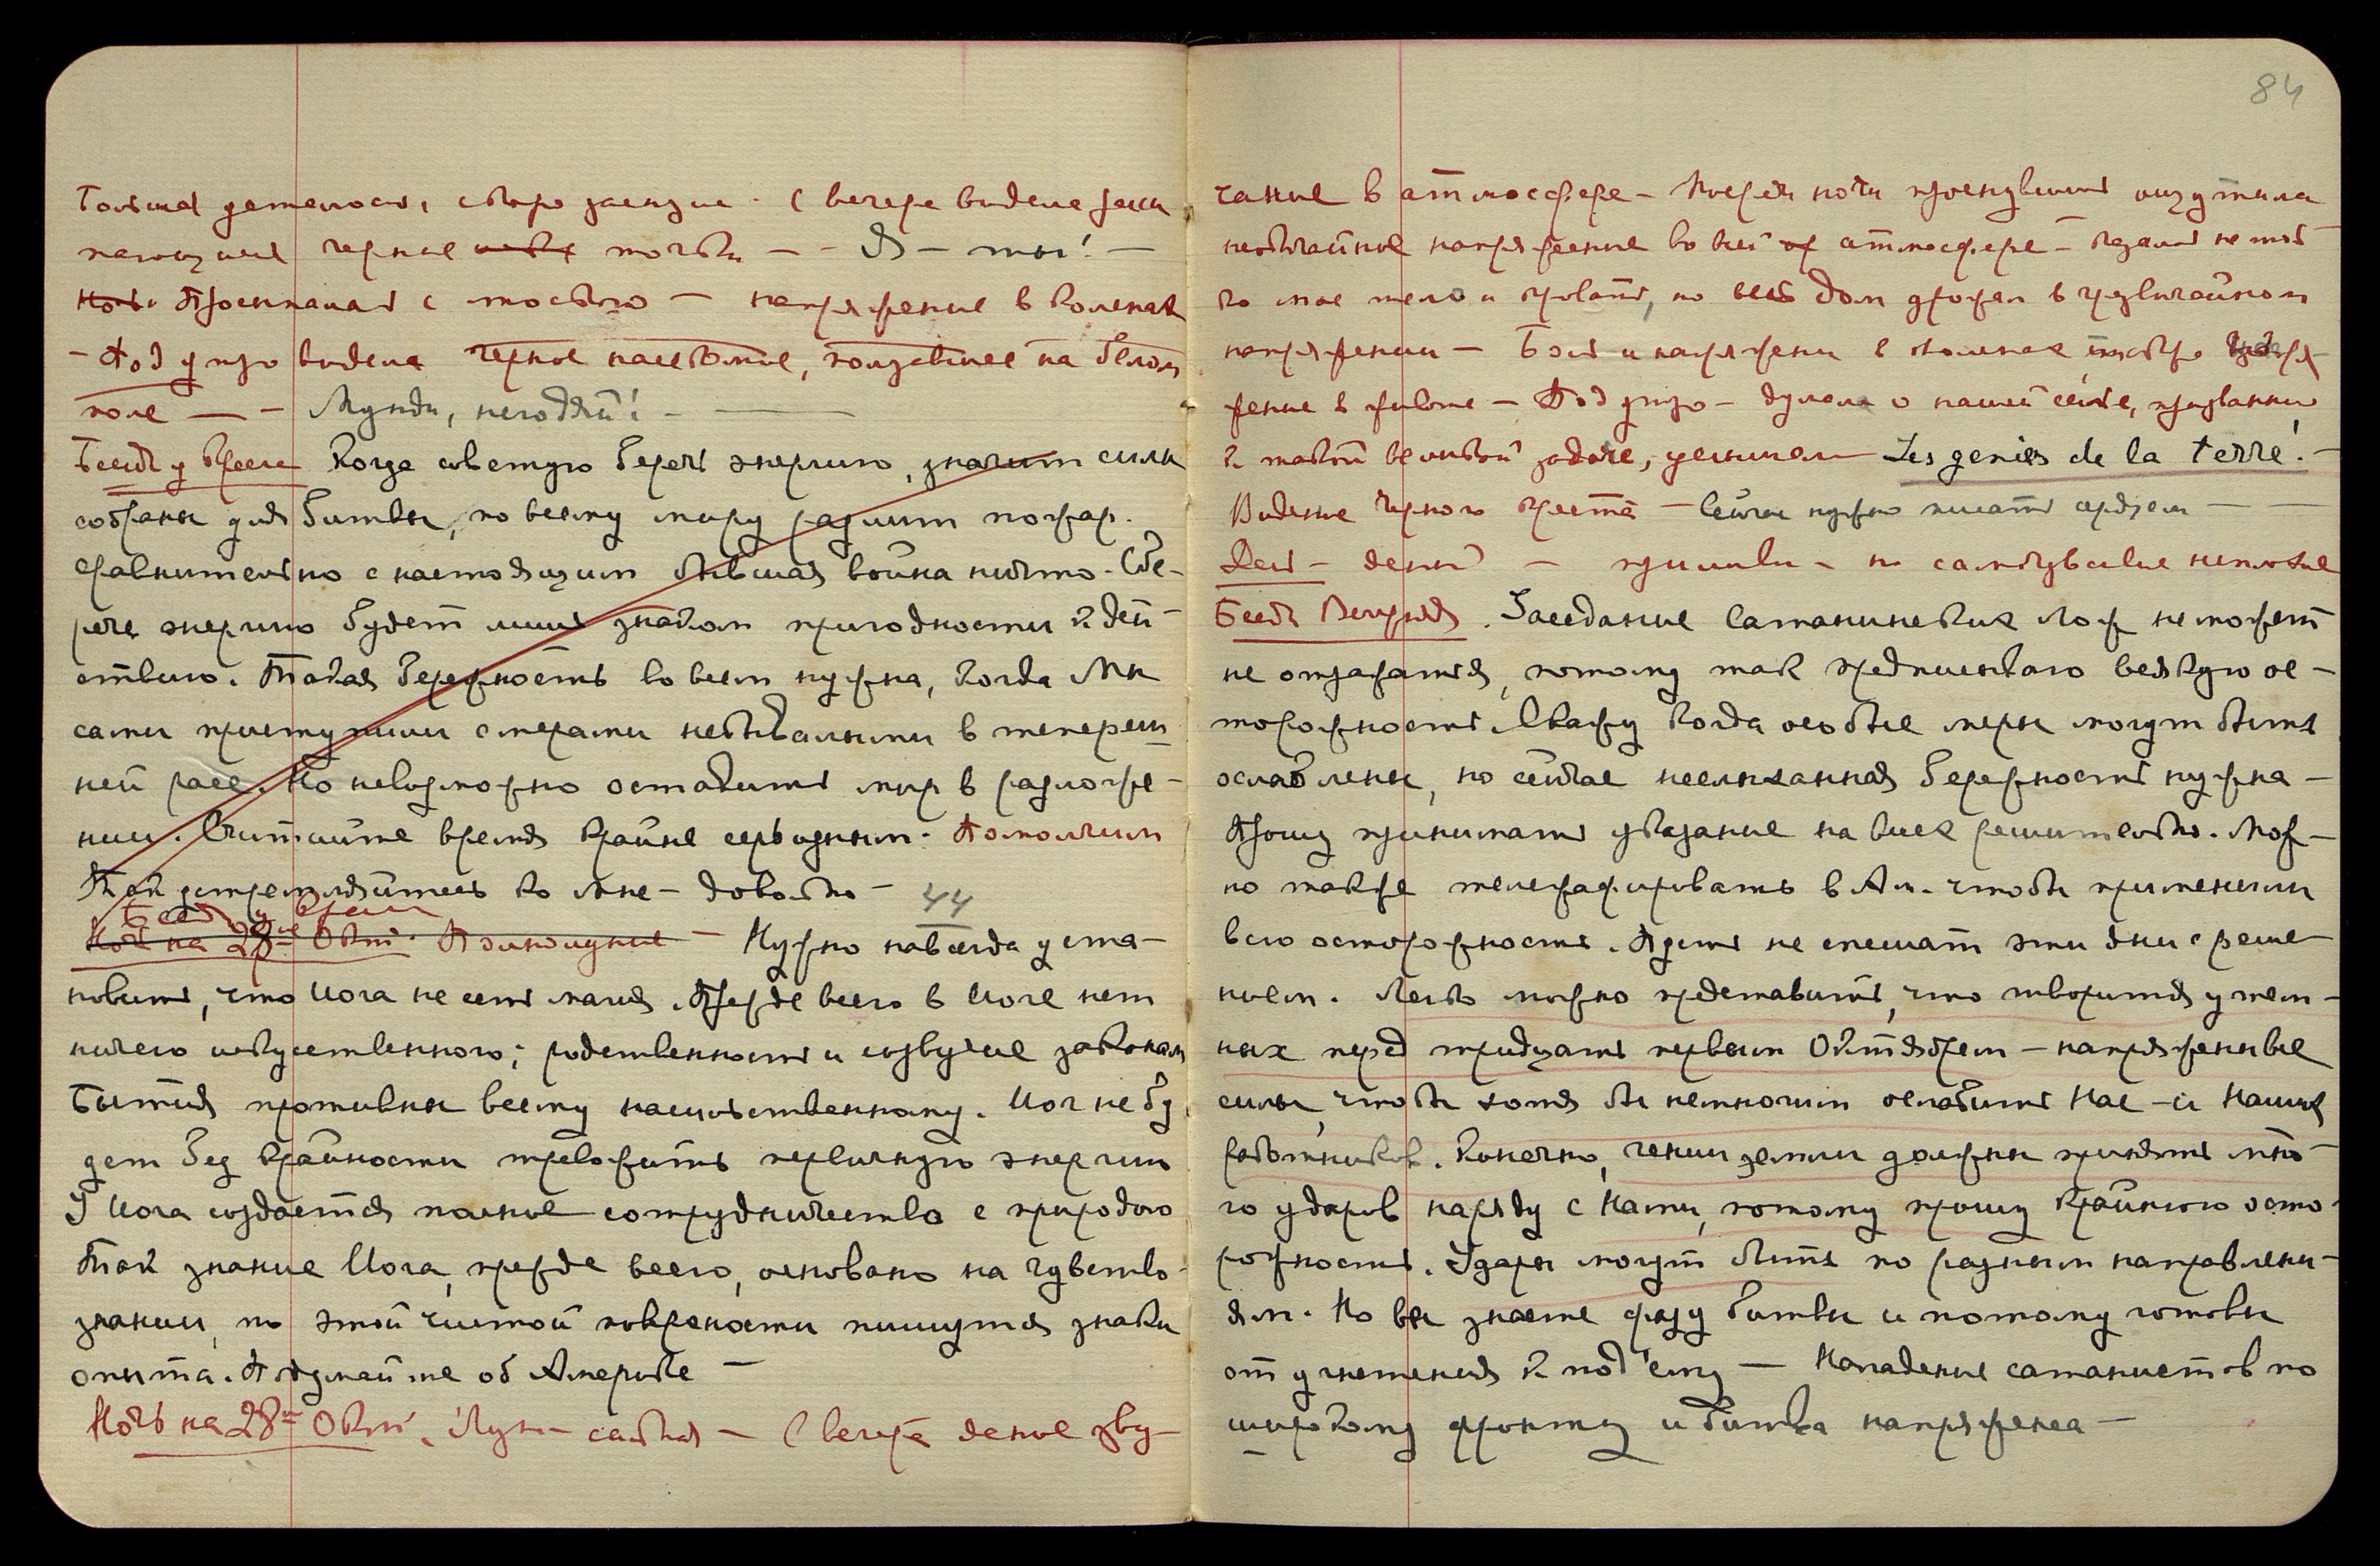 Большая усталость, скоро заснула. С вечера видела
черные точки — Я — ты! —
Просыпалась с тоскою — напряжение в коленах
— Под утро видела черное насекомое, ползавшее на белом
поле — — Мунди, негодяй! —
Беседа утром Когда советую беречь энергию, значит силы
собраны для битвы, по всему миру разлит пожар.
Сравнительно с настоящим бывшая война ничто. Сбе-
реч энергию будет лишь знаком пригодности к дей-
ствию. Такая бережность во всем нужна, когда Мы
сами приступили с мерами небывалыми в тепереш-
ней расе. Но невозможно оставить мир в разложе-
нии. Считайте время крайне серьезным. Помолчим
Так устремляйтесь ко Мне — довольно —
44
Ночь на 28ое Окт. Полнолуние — Нужно навсегда уста-
новить, что Йога не есть магия. Прежде всего в Йоге нет
ничего искусственного; родственность и созвучие законам
Бытия противны всему насильственному. Йог не бу
дет без крайности тревожить первичную энергию
У Йога создается полное сотрудничество с природою
Так знание Йога, прежде всего, основано на чувство-
знании, по этой чистой поверхности пишутся знаки
опыта. Подумайте об Америке —
Ночь на 28ое Окт. — слабая — С вечера звеня зву-
84
чание в атмосфере — Посреди ночи проснувшись ощутила
необычайное напряжение во всей атмосфере — казалось не толь
ко мое тело и кровать, но весь дом дрожал в чрезвычайном
напряжении — Боль и напряжение в коленах
жение в животе — Под утро — думала о нашей семье, призванной
к такой великой задаче, услышала Les genies de la terre! —
Видение черного креста — Сейчас нужно писать сердцем — —
День — — приливы — но самочувствие неплохое
Беседа Вечерняя. Заседание Сатанинских лож не может
не отражаться, потому так предписываю всякую ос-
торожность. Скажу когда особые меры могут быть
ослаблены, но сейчас неслыханная бережность нужна —
Прошу принимать указание на всех решительно. Мож-
но также телеграфировать в Ам. чтобы применили
всю осторожность. Пусть не спешат эти дни с реше-
нием. Легко можно представить, что творится у тем-
ных перед тридцать первым Октябрем — напряжены все
силы, чтобы хотя бы немногим ослабить Нас — и Наших
работников. Конечно, гении земли должны принять мно-
го ударов наряду с Нами, потому прошу крайнюю осто-
рожность. Удары могут быть по разным направлени-
ям. Но вы знаете фазу битвы и потому готовы
от угнетения к под'ему — Нападение сатанистов по
широкому фронту и битва напряжена —